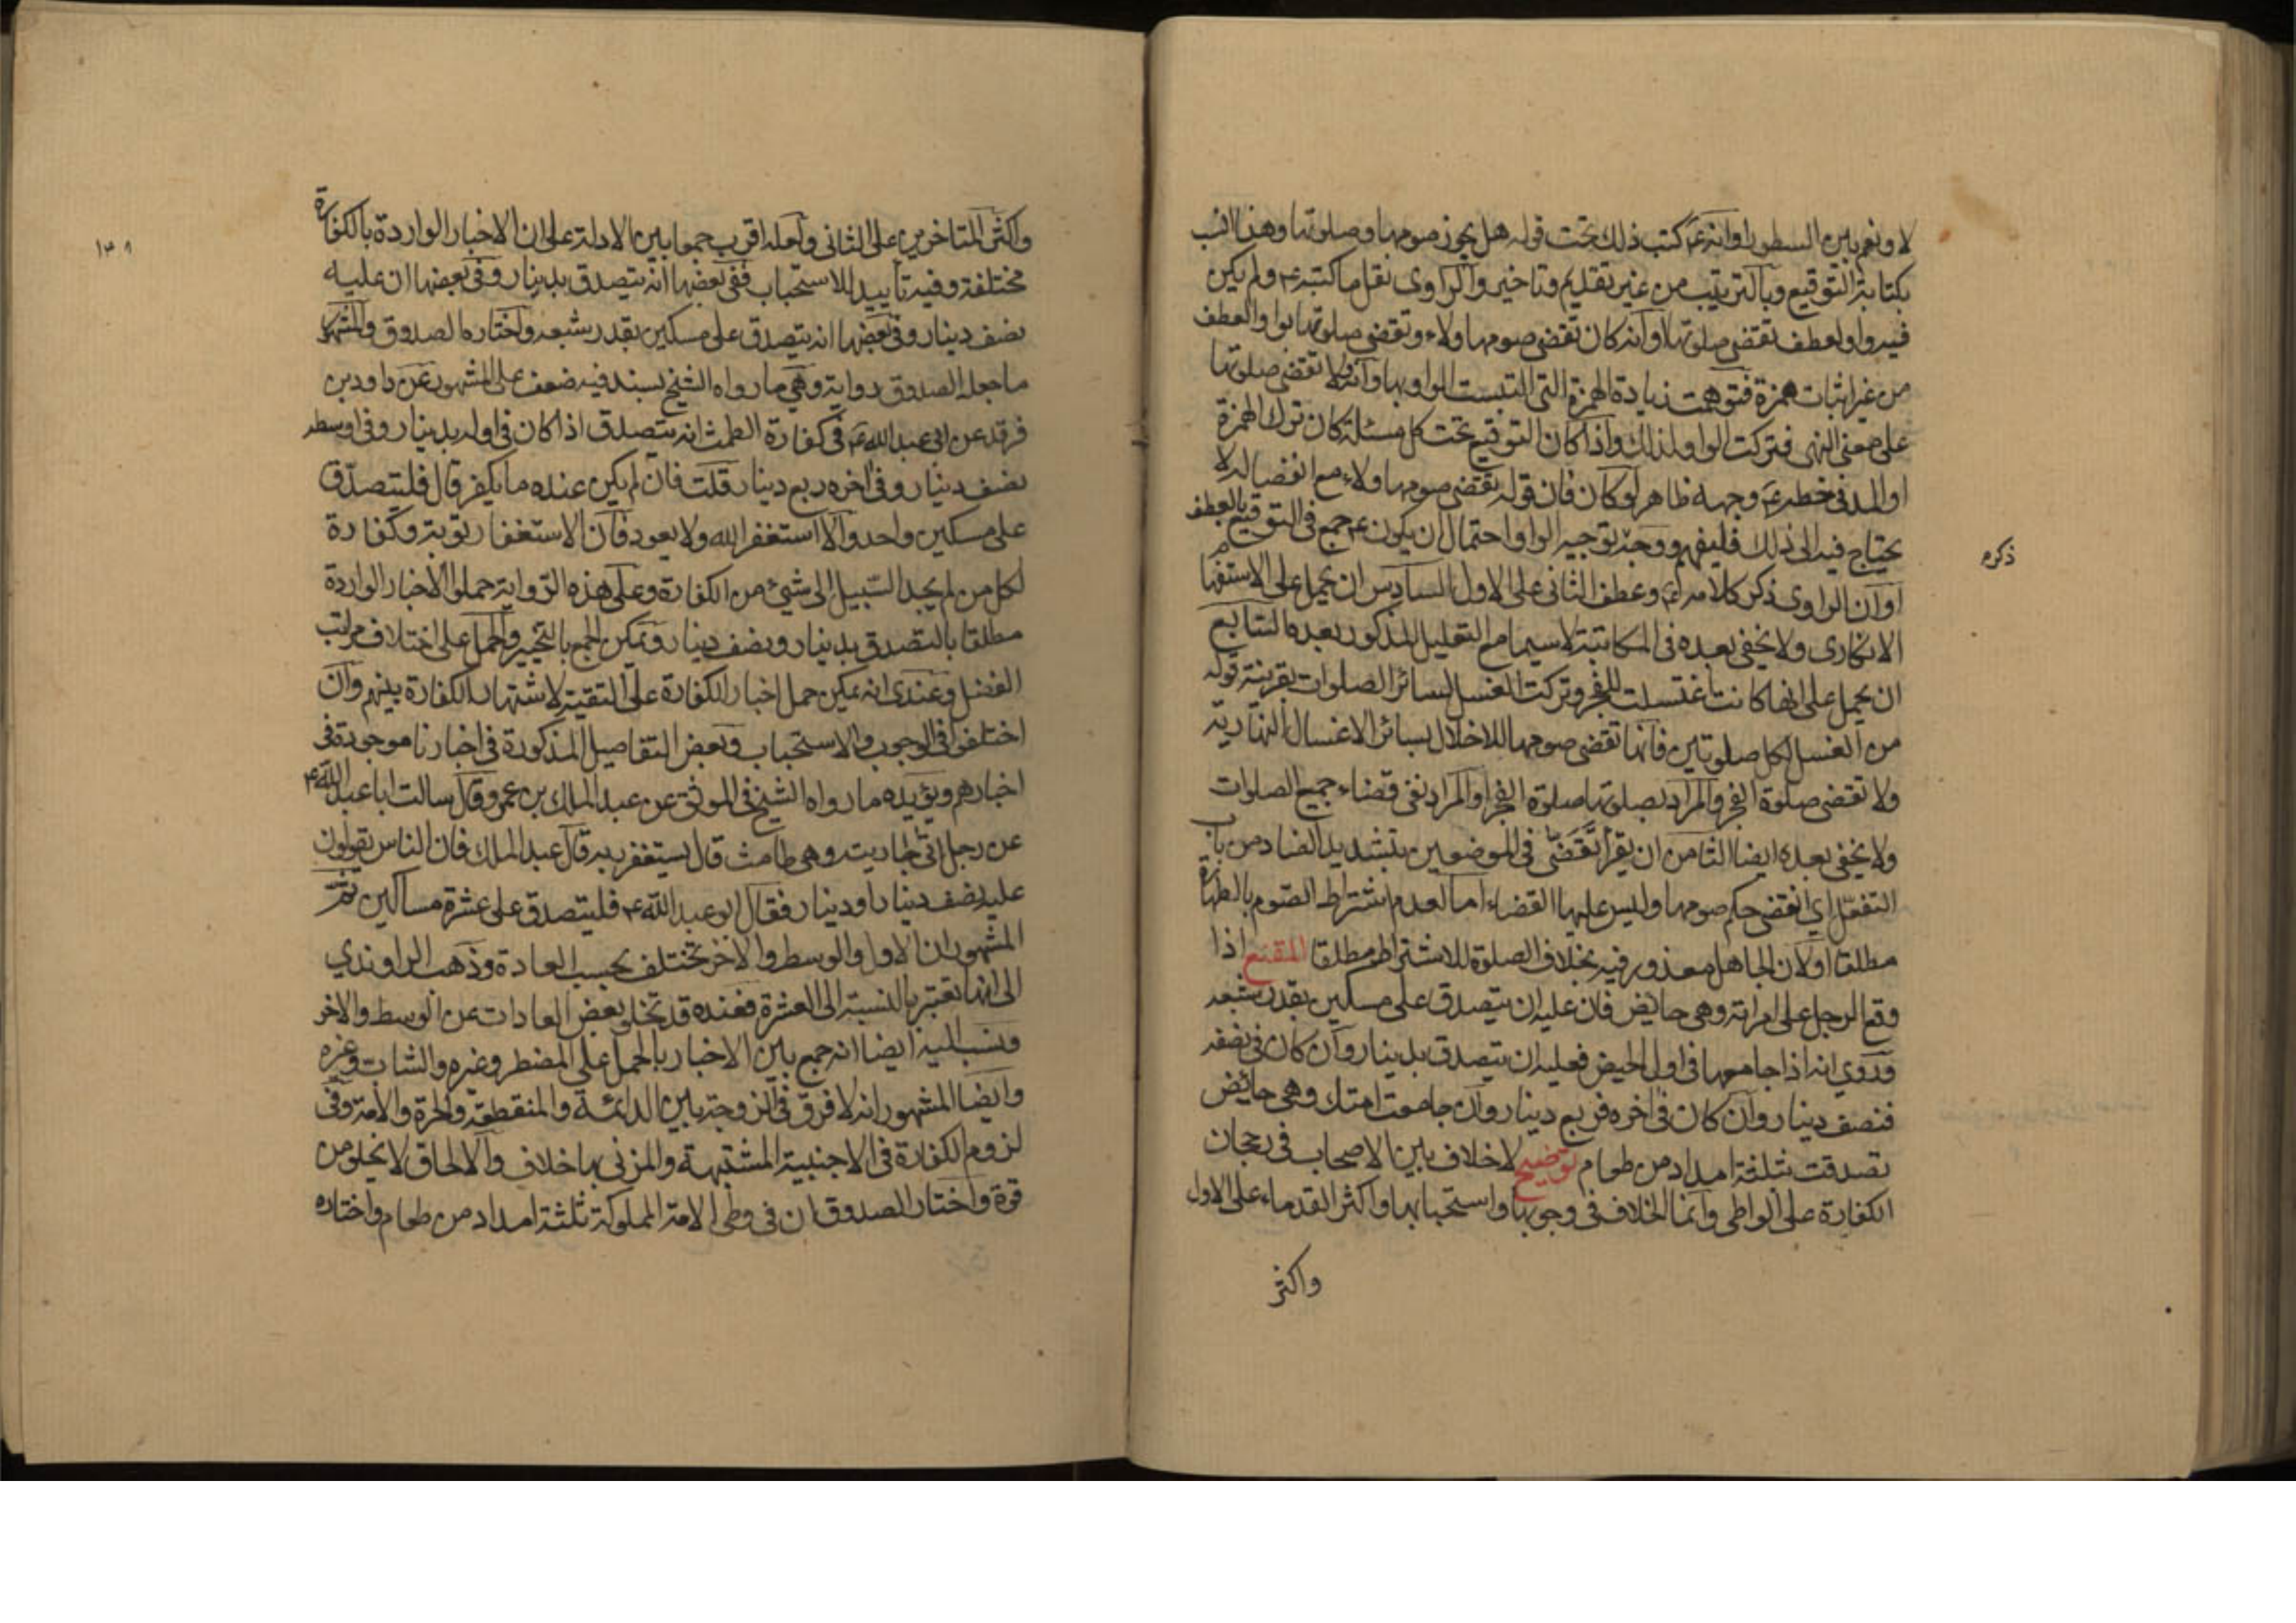 لا ونعم بين السطور او انه ع كتب ذلك تحت قوله هل يجوز صومها وصلوتها وهذا انسب
بكتابة التوقيع وبالترتيب من غير تقديم وتاخير والراوي نقل ما كتبه ع ولم يكن
فيه واو لعطف تقضي صلوتها او انه كان تقضي صومها ولاء وتقضي صلوتها بواو العطف
من غير اثبات همزة فتوهمت زيادة الهمزة التي التبست الواو بها وانه ولا تقضي صلوتها
على معنى النهى فتركت الواو لذلك واذا كان التوقيع تحت كل مسئلة كان ترك الهمزة
او المد في خطه ع وجهه ظاهر لو كان فان قوله تقضي صومها ولاء مع انفصاله لا
يحتاج فيه الى ذلك فليفهم ووجه توجيه الواو احتمال ان يكون ع جمع في التوقيع بالعطف
او ان الراوي ذكر كلامه ع وعطف الثاني على الاول السادس ان يحمل على الاستفهام
ذكره
الانكارى ولا يخفى بعده في المكاتبة لا سيما مع التعليل المذكور بعده السابع
ان يحمل على انها كانت اغتسلت للفجر وتركت الغسل لسائر الصلوات بقرينة قوله
من الغسل لكل صلوتين فانها تقضي صومها للاخلال بسائر الاغسال النهارية
ولا تقضى صلوة الفجر والمراد بصلوتها صلوة الفجر او المراد نفى قضاء جميع الصلوات
ولا يخفى بعده ايضا الثامن ان يقرأ تقضّى في الموضعين بتشديد الضاد من باب
التفعّل اي انقضى حكم صومها وليس عليها القضاء اما لعدم اشتراط الصوم بالطهارة
مطلقا او لان الجاهل معذور فيه بخلاف الصلوة للاشتراط مطلقا المقنع اذا
وقع الرجل على امراته وهي حايض فان عليه ان يتصدق على مسكين بقدر شبعه
وروي انه اذا جامعها في اول الحيض فعليه ان يتصدق بدينار وان كان في نصفه
فنصف دينار وان كان في اخره فربع دينار وان جامعت امتك وهي حائض
تصدقت بثلثة امداد من طعام توضيح لا خلاف بين الاصحاب في رجحان
الكفارة على الواطي وانما الخلاف في وجوبها واستحبابها واكثر القدماء على الاول
واكثر
واكثر المتاخرين على الثاني ولعله اقرب جمعا بين الادلة على ان الاخبار الواردة بالكفارة
مختلفة وفيه تأييد للاستحباب ففي بعضها انه يتصدق بدينار وفي بعضها ان عليه
نصف دينار وفي بعضها انه يتصدق على مسكين بقدر شبعه واختاره الصدوق والمشهور
ما جعله الصدوق رواية وهي ما رواه الشيخ بسند فيه ضعف على المشهور عن داود بن
فرقد عن ابي عبد الله ع في كفارة الطمث انه يتصدق اذا كان في اوله بدينار وفي اوسطه
نصف دينار وفي اخره ربع دينار قلت فان لم يكن عنده ما يكفر قال فليتصدّق
على مسكين واحد والا استغفر الله ولا يعود فان الاستغفار توبة وكفارة
لكل من لم يجد السّبيل الى شيء من الكفارة وعلى هذه الرواية حملوا الاخبار الواردة
مطلقا بالتصدق بدينار ونصف دينار ويمكن الجمع بالتخيير والحمل على اختلاف مراتب
الفضل وعندى انه يمكن حمل اخبار الكفارة على التقية لاشتهار الكفارة بينهم وان
اختلفوا في الوجوب والاستحباب وبعض التفاصيل المذكورة في اخبارنا موجودة في
اخبارهم ويؤيده ما رواه الشيخ في الموثق عن عبد الملك بن عمرو قال سالت ابا عبد الله ع
عن رجل اتى جاريته وهي طامث قال يستغفر ربه قال عبد الملك فان الناس يقولون
عليه نصف دينار او دينار فقال ابو عبد الله ع فليتصدق على عشرة مساكين ثمّ
المشهور ان الاول والوسط والاخر تختلف بحسب العادة وذهب الراوندي
الى انها تعتبر بالنسبة الى العشرة فعنده قد تخلو بعض العادات عن الوسط والاخر
ونسب اليه ايضا انه جمع بين الاخبار بالحمل على المضطر وغيره والشاب وغيره
وايضا المشهور انه لا فرق في الزوجة بين الدائمة والمنقطعة والحرة والامة وفي
لزوم الكفارة في الاجنبية المشتبهة والمزنى بها خلاف والالحاق لا يخلو من
قوة واختار الصدوق ان في وطى الامة المملوكة ثلثة امداد من طعام واختاره